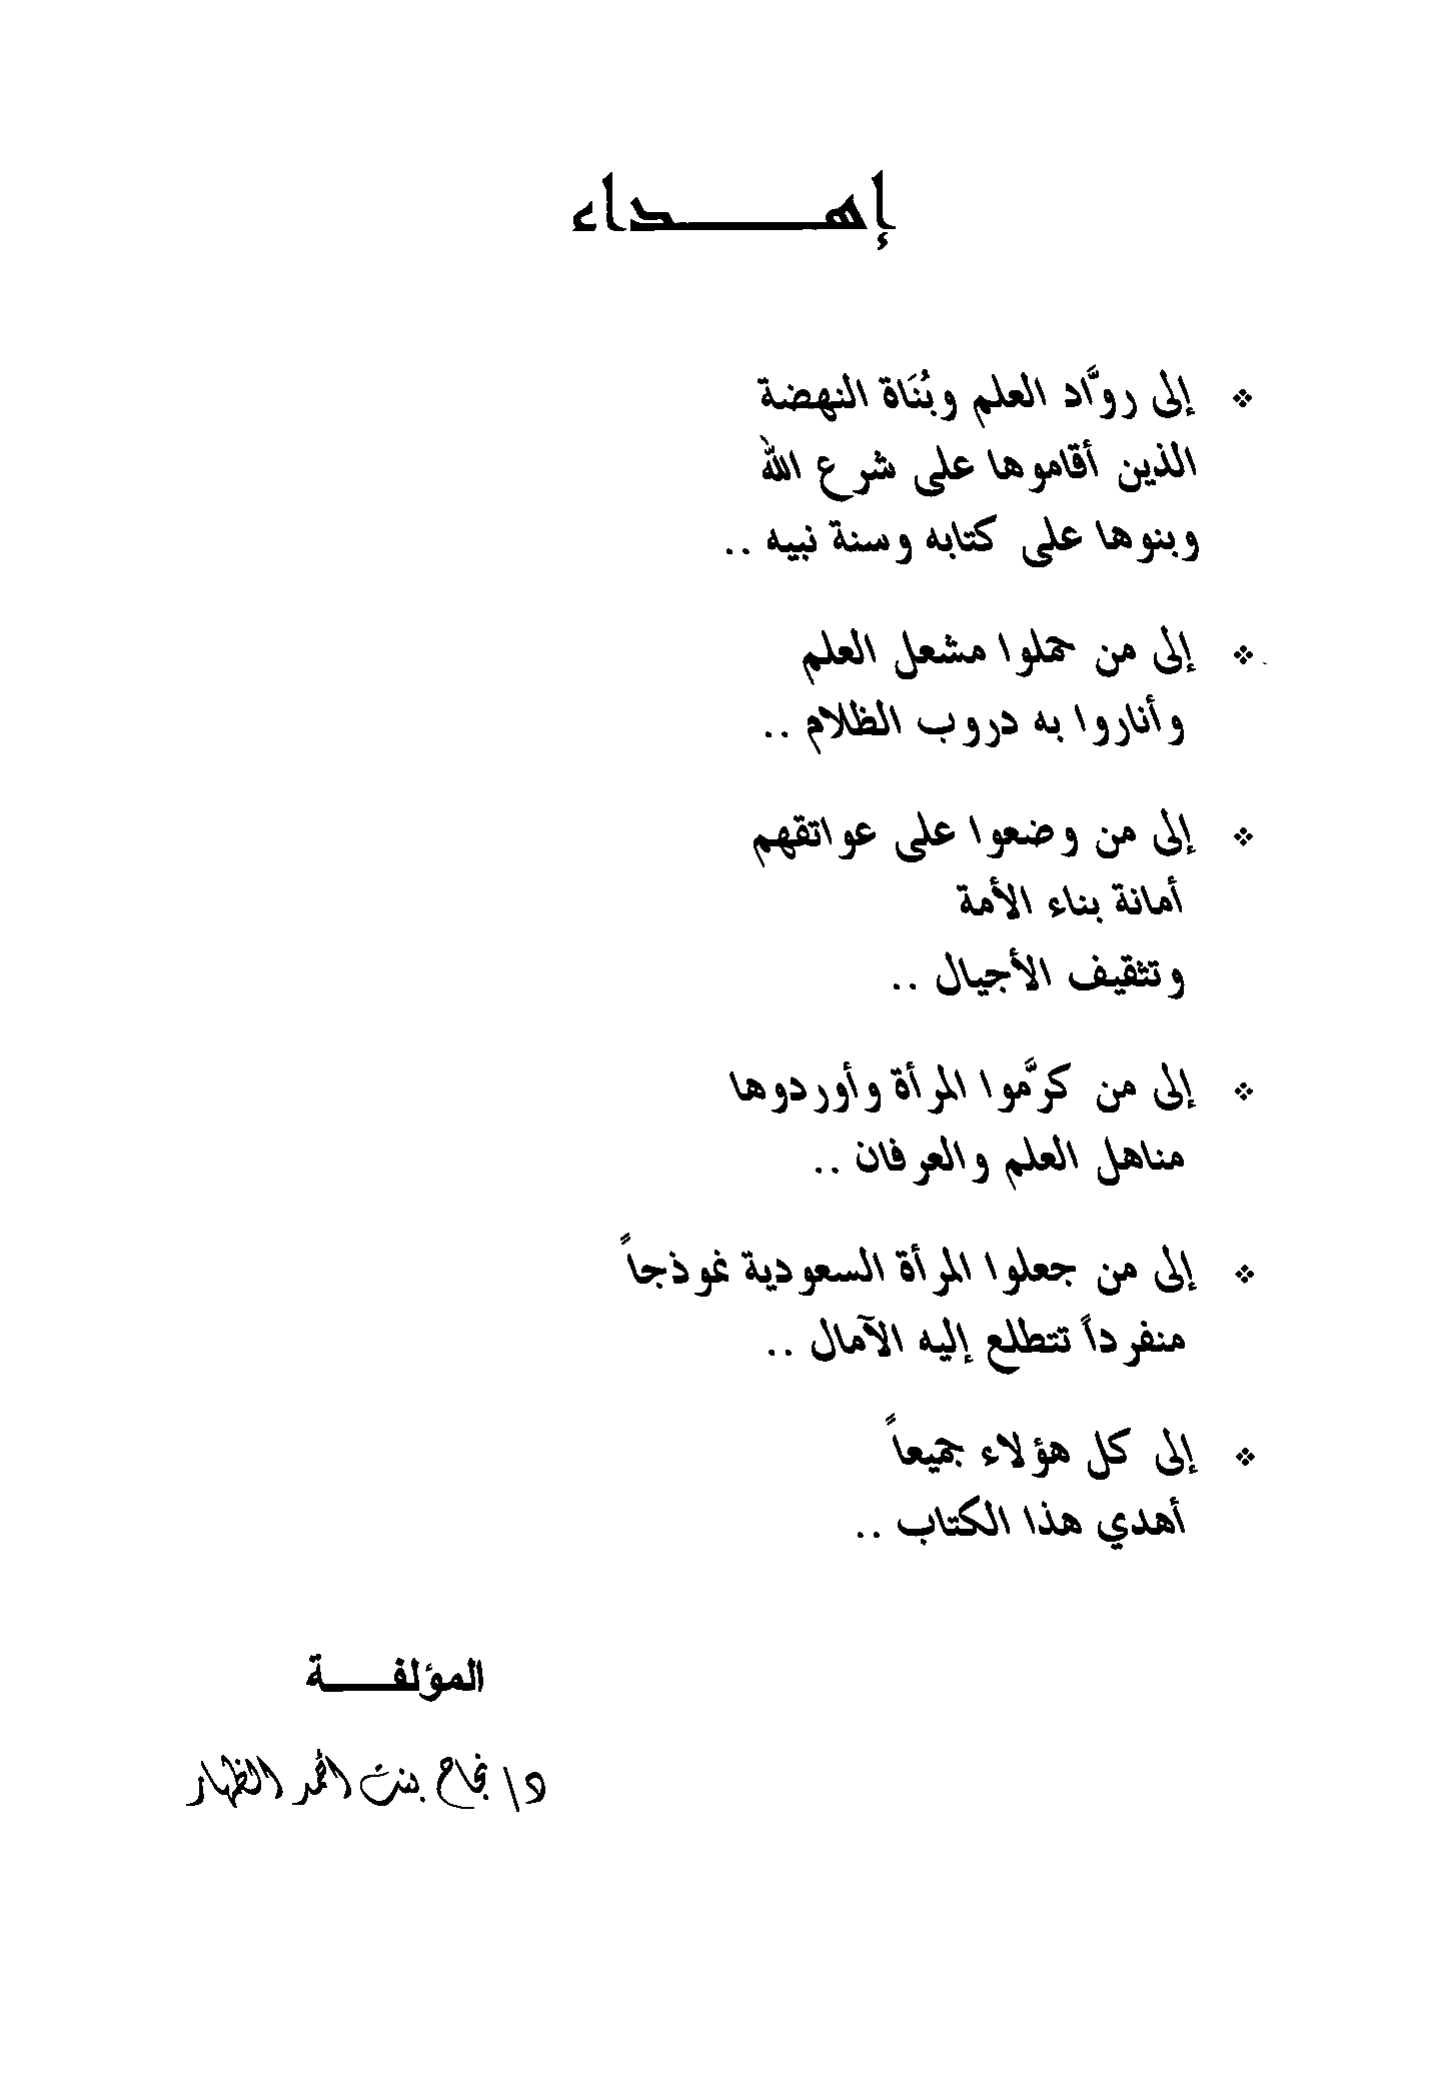 إهـــداء
❖ إلى روَّاد العلم وبُنَاة النهضة
الذين أقاموها على شرع الله
وبنوها على كتابه وسنة نبيه ..
❖ إلى من حملوا مشعل العلم
وأناروا به دروب الظلام ..
❖ إلى من وضعوا على عواتقهم
أمانة بناء الأمة
وتثقيف الأجيال ..
❖ إلى من كرَّموا المرأة وأوردوها
مناهل العلم والعرفان ..
❖ إلى من جعلوا المرأة السعودية نموذجاً
منفرداً تتطلع إليه الآمال ..
❖ إلى كل هؤلاء جميعاً
أهدي هذا الكتاب ..
المؤلفـــة
د/ نجاح بنت أحمد الظهار